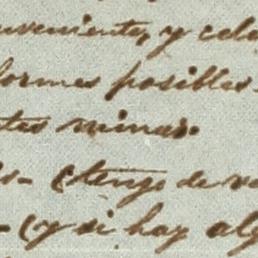 uveniente, y cele
formes posibles.
tes minas.
s- (tengo de ve
- (y si hay alg